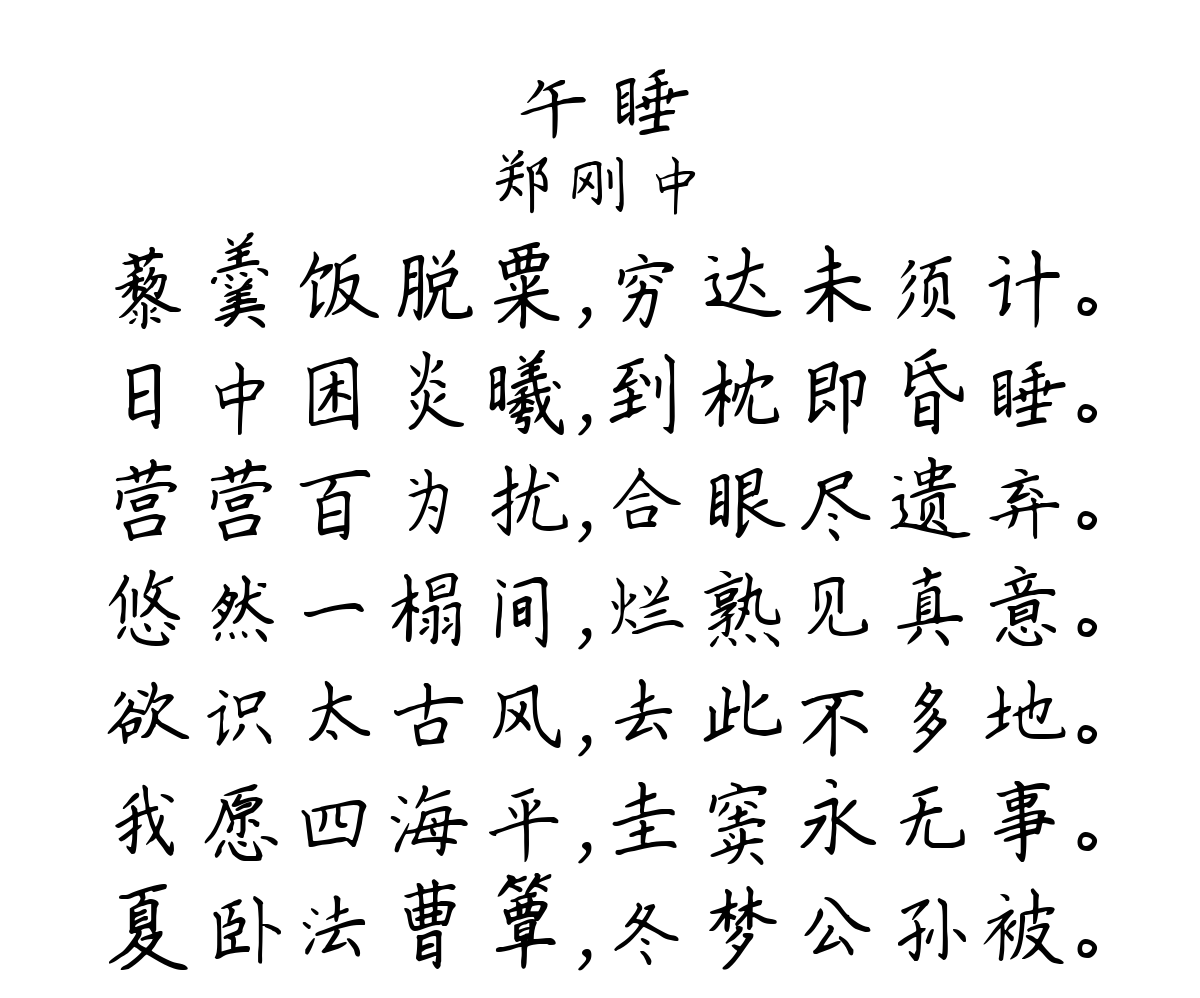 午睡
郑刚中
藜羹饭脱粟,穷达未须计。
日中困炎曦,到枕即昏睡。
营营百为扰,合眼尽遗弃。
悠然一榻间,烂熟见真意。
欲识太古风,去此不多地。
我愿四海平,圭窦永无事。
夏卧法曹簟,冬梦公孙被。